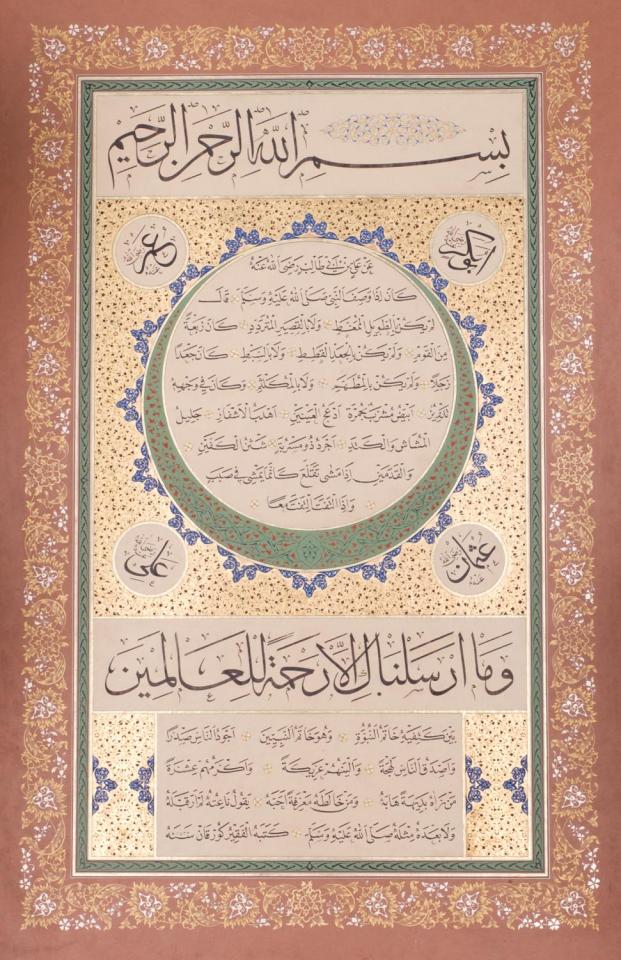 بِسْمِ اللهِ الرَّحْمٰنِ الرَّحِيمِ
ابوبكر رضي الله عنه
عمر رضي الله عنه
عَنْ عَلِيِّ بْنِ اَبِي طَالِبٍ رَضِيَ اللهُ عَنْهُ
كَانَ اِذَا وَصَفَ النَّبِيَّ صَلَّى اللهُ عَلَيْهِ وَسَلَّمَ قَالَ
لَمْ يَكُنْ بِالطَّوِيلِ الْمُمَغَّطِ وَلَا بِالْقَصِيرِ الْمُتَرَدِّدِ كَانَ رَبْعَةً
مِنَ الْقَوْمِ وَلَمْ يَكُنْ بِالْجَعْدِ الْقَطَطِ وَلَا بِالسَّبِطِ كَانَ جَعْدًا
رَجِلًا وَلَمْ يَكُنْ بِالْمُطَهَّمِ وَلَا بِالْمُكَلْثَمِ وَكَانَ فِي وَجْهِهِ
تَدْوِيرٌ اَبْيَضُ مُشْرَبٌ حُمْرَةً اَدْعَجُ الْعَيْنَيْنِ اَهْدَبُ الْاَشْفَارِ جَلِيلُ
الْمُشَاشِ وَالْكَتَدِ اَجْرَدُ ذُو مَسْرُبَةٍ شَثْنُ الْكَفَّيْنِ
وَالْقَدَمَيْنِ اِذَا مَشَى تَقَلَّعَ كَاَنَّمَا يَمْشِي فِي صَبَبٍ
وَاِذَا الْتَفَتَ الْتَفَتَ مَعًا
عثمان رضي الله عنه
علي رضي الله عنه
وَمَا اَرْسَلْنَاكَ اِلَّا رَحْمَةً لِلْعَالَمِينَ
بَيْنَ كَتِفَيْهِ خَاتَمُ النُّبُوَّةِ وَهُوَ خَاتَمُ النَّبِيِّينَ اَجْوَدُ النَّاسِ صَدْرًا
وَاَصْدَقُ النَّاسِ لَهْجَةً وَاَلْيَنُهُمْ عَرِيكَةً وَاَكْرَمُهُمْ عِشْرَةً
مَنْ رَآهُ بَدِيهَةً هَابَهُ وَمَنْ خَالَطَهُ مَعْرِفَةً اَحَبَّهُ يَقُولُ نَاعِتُهُ لَمْ اَرَ قَبْلَهُ
وَلَا بَعْدَهُ مِثْلَهُ صَلَّى اللهُ عَلَيْهِ وَسَلَّمَ كَتَبَهُ الْفَقِيرُ